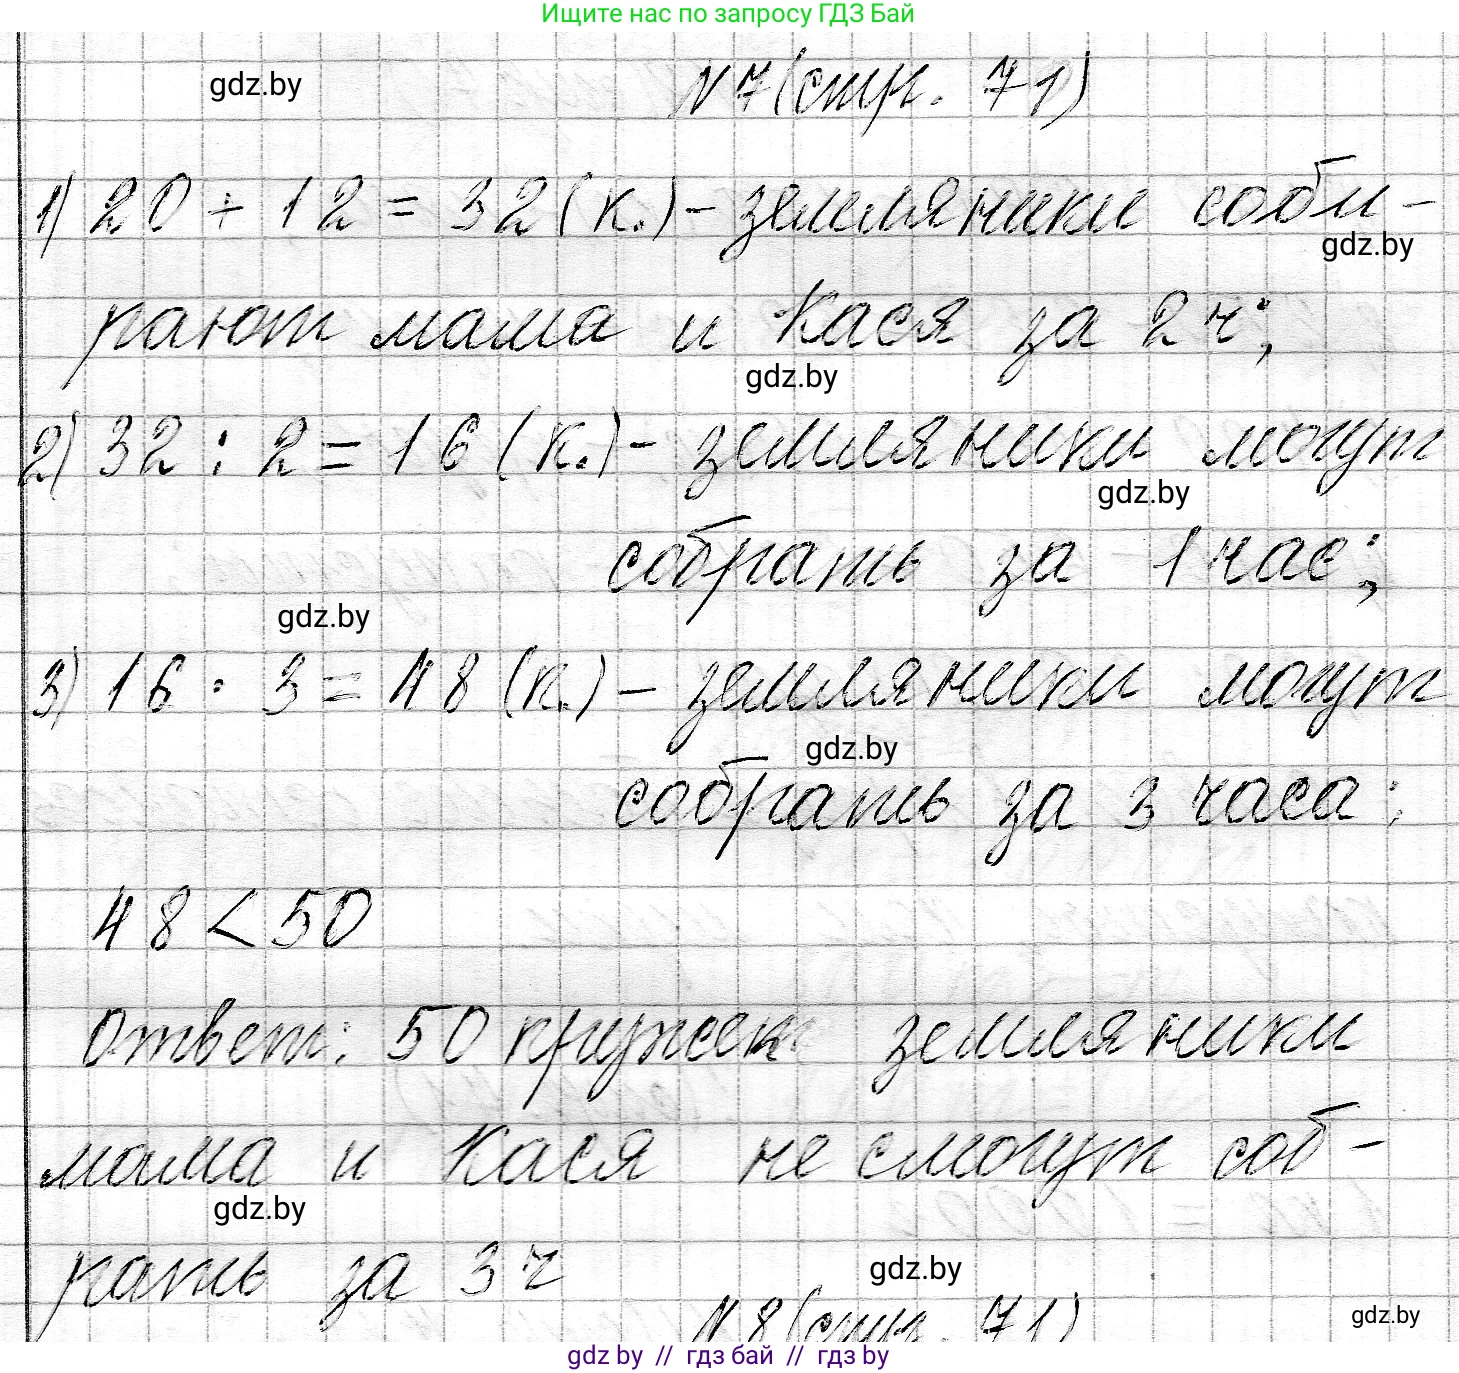 Ищите нас по запросу ГДЗ Бай
gdz.by
N 7 (стр. 71)
1) 20 + 12 = 32 (к.) - земляники соби-
gdz.by
рают мама и Кася за 2 ч;
gdz.by
2) 32 : 2 = 16 (к.) - земляники могут
gdz.by
собрать за 1 час;
gdz.by
3) 16 · 3 = 48 (к.) - земляники могут
gdz.by
собрать за 3 часа;
48 < 50
Ответ: 50 кружек земляники
мама и Кася не смогут соб-
gdz.by
рать за 3 ч
gdz.by
N 8 (стр. 71)
gdz.by
gdz by // гдз бай // гдз by